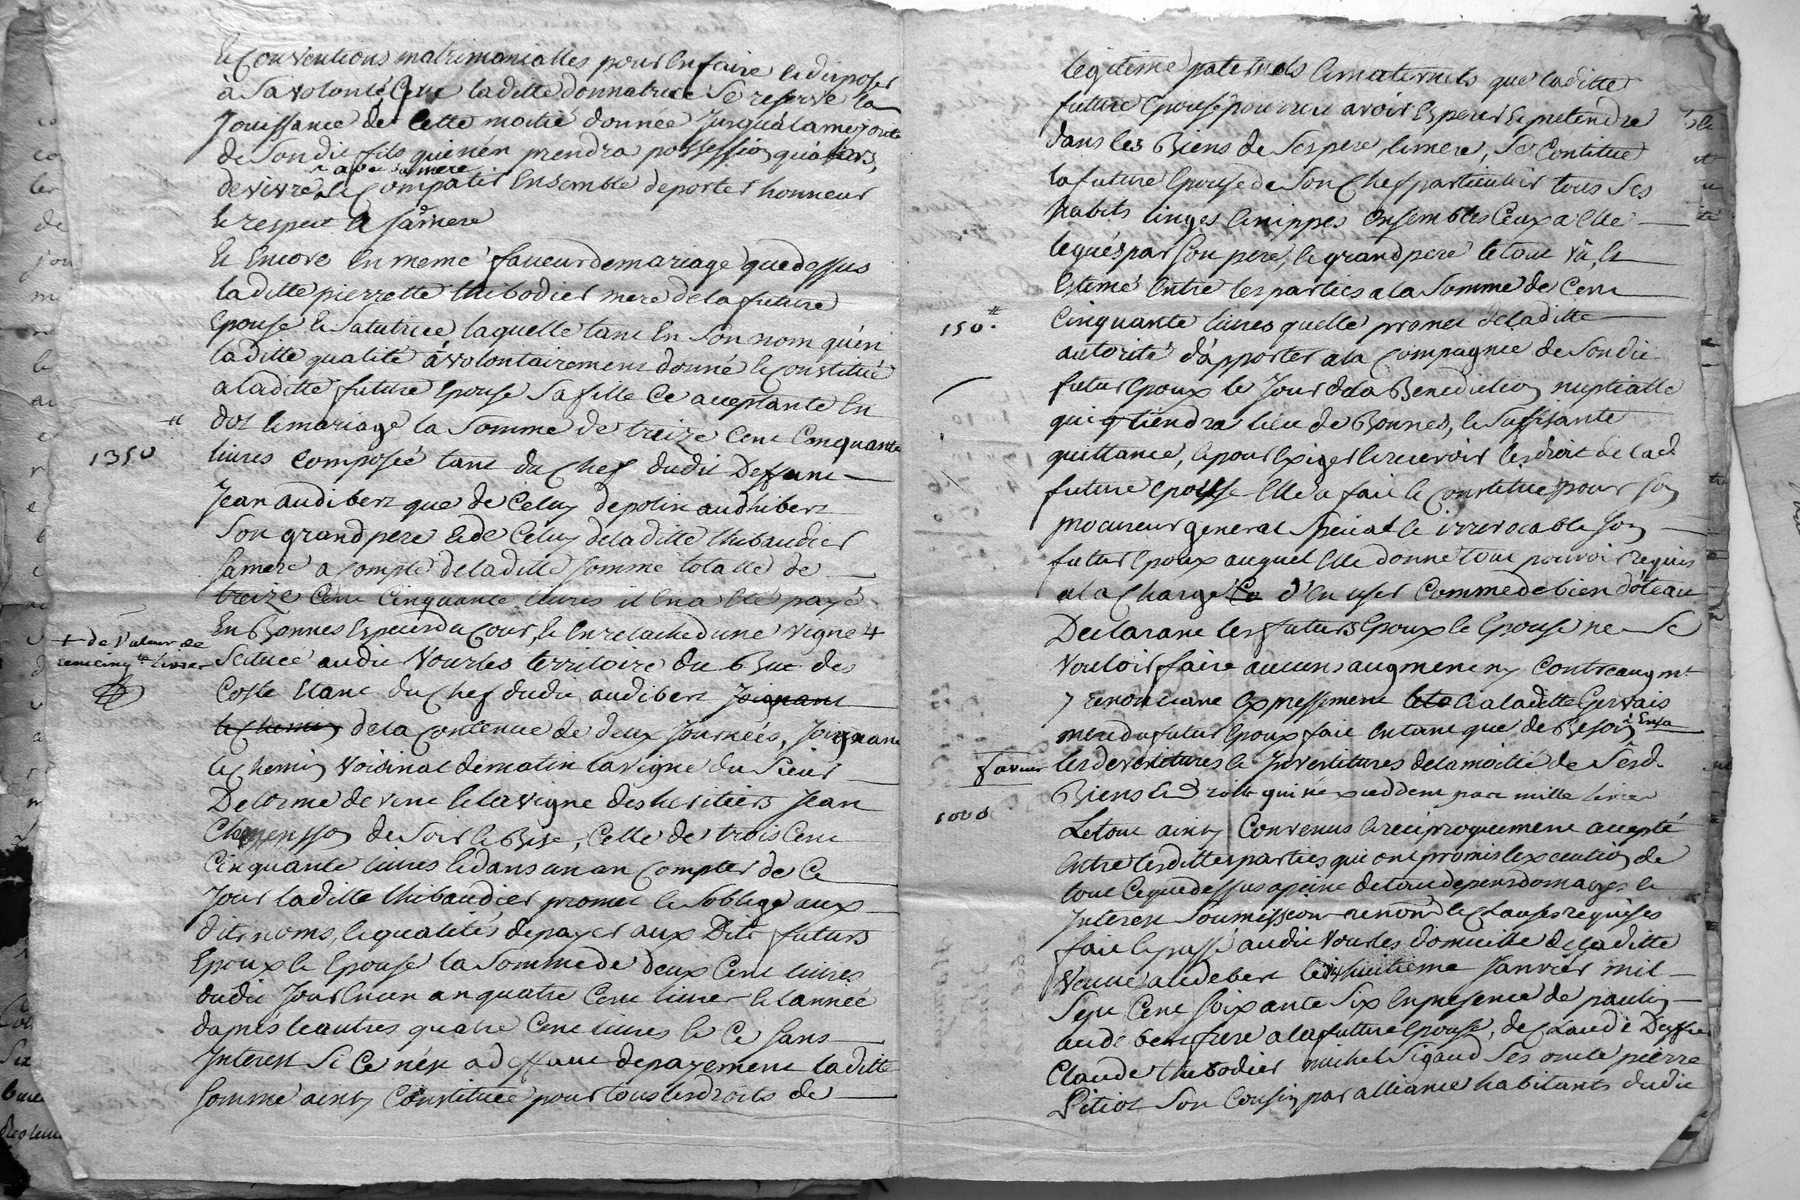 et Conventions matrimonialles pour en faire et disposer
à sa volonté, Cere laditte donnatrice Se reserve la
Jouissance de cette moitié donnée Jusqu'a la majorité
de Sondit fils qui n'en prendra possession qu'alors,
avec sa mere
de vivre et Compatir Ensemble de porter honneur
et respect a sa mere
Et Encore En meme faveur de mariage que dessus
laditte pierrette thibodier mere de la future
Epouse et Sa tutrice, laquelle tant En Son nom qu'en
laditte qualité à volontairement donné et Constitué
a laditte future Epouse Sa fille Ce acceptante En
dot et mariage la Somme de treize Cent Cinquante
1350 ₶
livres Composée tant du Chef dudit Deffunt
Jean audibert que de Celuy de polin audhibert
Son grand pere et de Celuy de laditte thibaudier
Samere a Compte de laditte Somme totalle de
treize Cent Cinquante livres il En a Eté payé
En Bonnes Especes du Cour, et En relache d'une vigne +
+ de Valeur de
cent cinq.te livres
Scituée audit Vourles territoire du Buc des
Coste Etant du Chef dudit audibert Joignant
le Chemin de la Contenue de deux Journées, Joignant
le Chemin Voisinal de matin la vigne du Sieur
Delorme de vent et la vigne des heritiers Jean
de Soir et Bise, Celle de trois Cent
Cinquante livres et dans un an Compter de Ce
Jour laditte thibaudier promet et S'oblige aux
dits noms, et qualités de payer aux Dits futurs
Epoux et Epouse la Somme de deux Cent livres
dudit Jour En un an quatre Cent livres et l'année
d'apres les autres quatre Cent livres et Ce Sans
Interest Si Ce n'est a deffaut de payement laditte
Somme ainsy Constituée pour tous les droits de
legitime paternels et maternels que laditte
future Epouse pourroit avoir Esperer et pretendre
dans les Biens de Ses pere et mere, Se Contitue
la future Epouse de Son Chef particulier tous Ses
habits linges et nippes Ensembles Ceux a Elle
legués par Son pere, et grand pere le tout vû, et
Estimé Entre les parties a la Somme de Cent
150 ₶
Cinquante livres quelle promet de laditte
autorité d'apporter a la Compagnie de Sondit
futur Epoux le Jour de la Benediction nuptialle
qui tiendra lieu de Bonnes, et Suffisante
quittance, et pour Exiger et recevoir les droit de lad.
future Epouse Elle a fait et Constitué pour Son
procureur general Special et irrevocable Son
futur Epoux auquel Elle donne tout pouvoir requis
a la Charge d'En user Comme de bien dôteau
Declarant les futurs Epoux et Epouse ne Se
Vouloir faire aucuns augment ny Contreaugm.t
y renonciant Expressement et a laditte Gervais
mere du futur Epoux fait En tant que de Besoin En sa
faveur les devestitures et Investitures de la moitié de Sesd.
Biens et Droits qui n'excedent pas mille livres
1000
Le tout ainsy Convenus et reciproquement accepté
Entre lesdittes parties qui ont promis l'execution de
tout Ce que dessus a peine de tous depens domages et
Interest Soumission renon.on et Clauses requises
fait et passé audit Vourles domicille de laditte
Veuve audebert le dix huitieme Janvier mil
Sept Cent Soixante Six En presence de paulin
audebert frere a la future Epouse, de Claude
Claude thibodier michel Sigaud Ses oncle pierre
Petiot Son Cousin par alliance habitants dudit